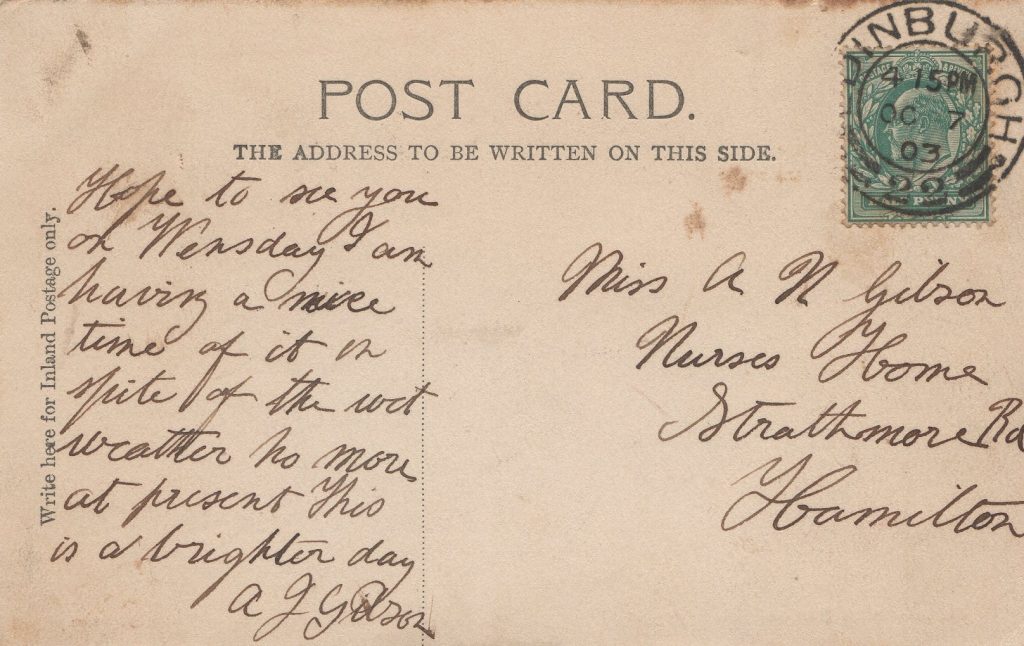 POST CARD.
THE ADDRESS TO BE WRITTEN ON THIS SIDE.
Write here for Inland Postage only.
Hope to see you
on Wensday I am
having a nice
time of it in
spite of the wet
weather no more
at present This
is a brighter day
A J Gibson
EDINBURGH
4 15PM
OC 7
03
22
Miss A N Gibson
Nurses Home
Strathmore Rd
Hamilton